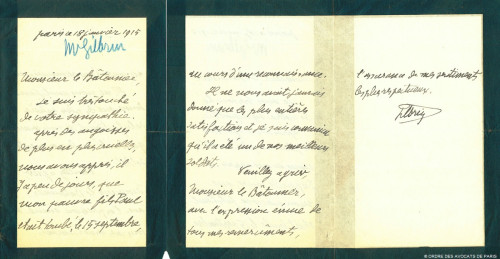 paris 18 janvier 1915
Monsieur le Bâtonnier,
je suis très touché
de votre sympathie.
après des angoisses
de plus en plus cruelles,
nous avons appris, il
y a peu de jours, que
mon pauvre fils Paul
était tombé, le 15 septembre,
au cours d'une reconnaissance.
Il ne nous avait jamais
donné que les plus entières
satisfactions et je suis convaincu
qu'il a été un de nos meilleurs
soldats.
Veuillez agréer
Monsieur le Bâtonnier,
avec l'expression émue de
tous mes remerciements,
l'assurance de mes sentiments
les plus respectueux.
© ORDRE DES AVOCATS DE PARIS